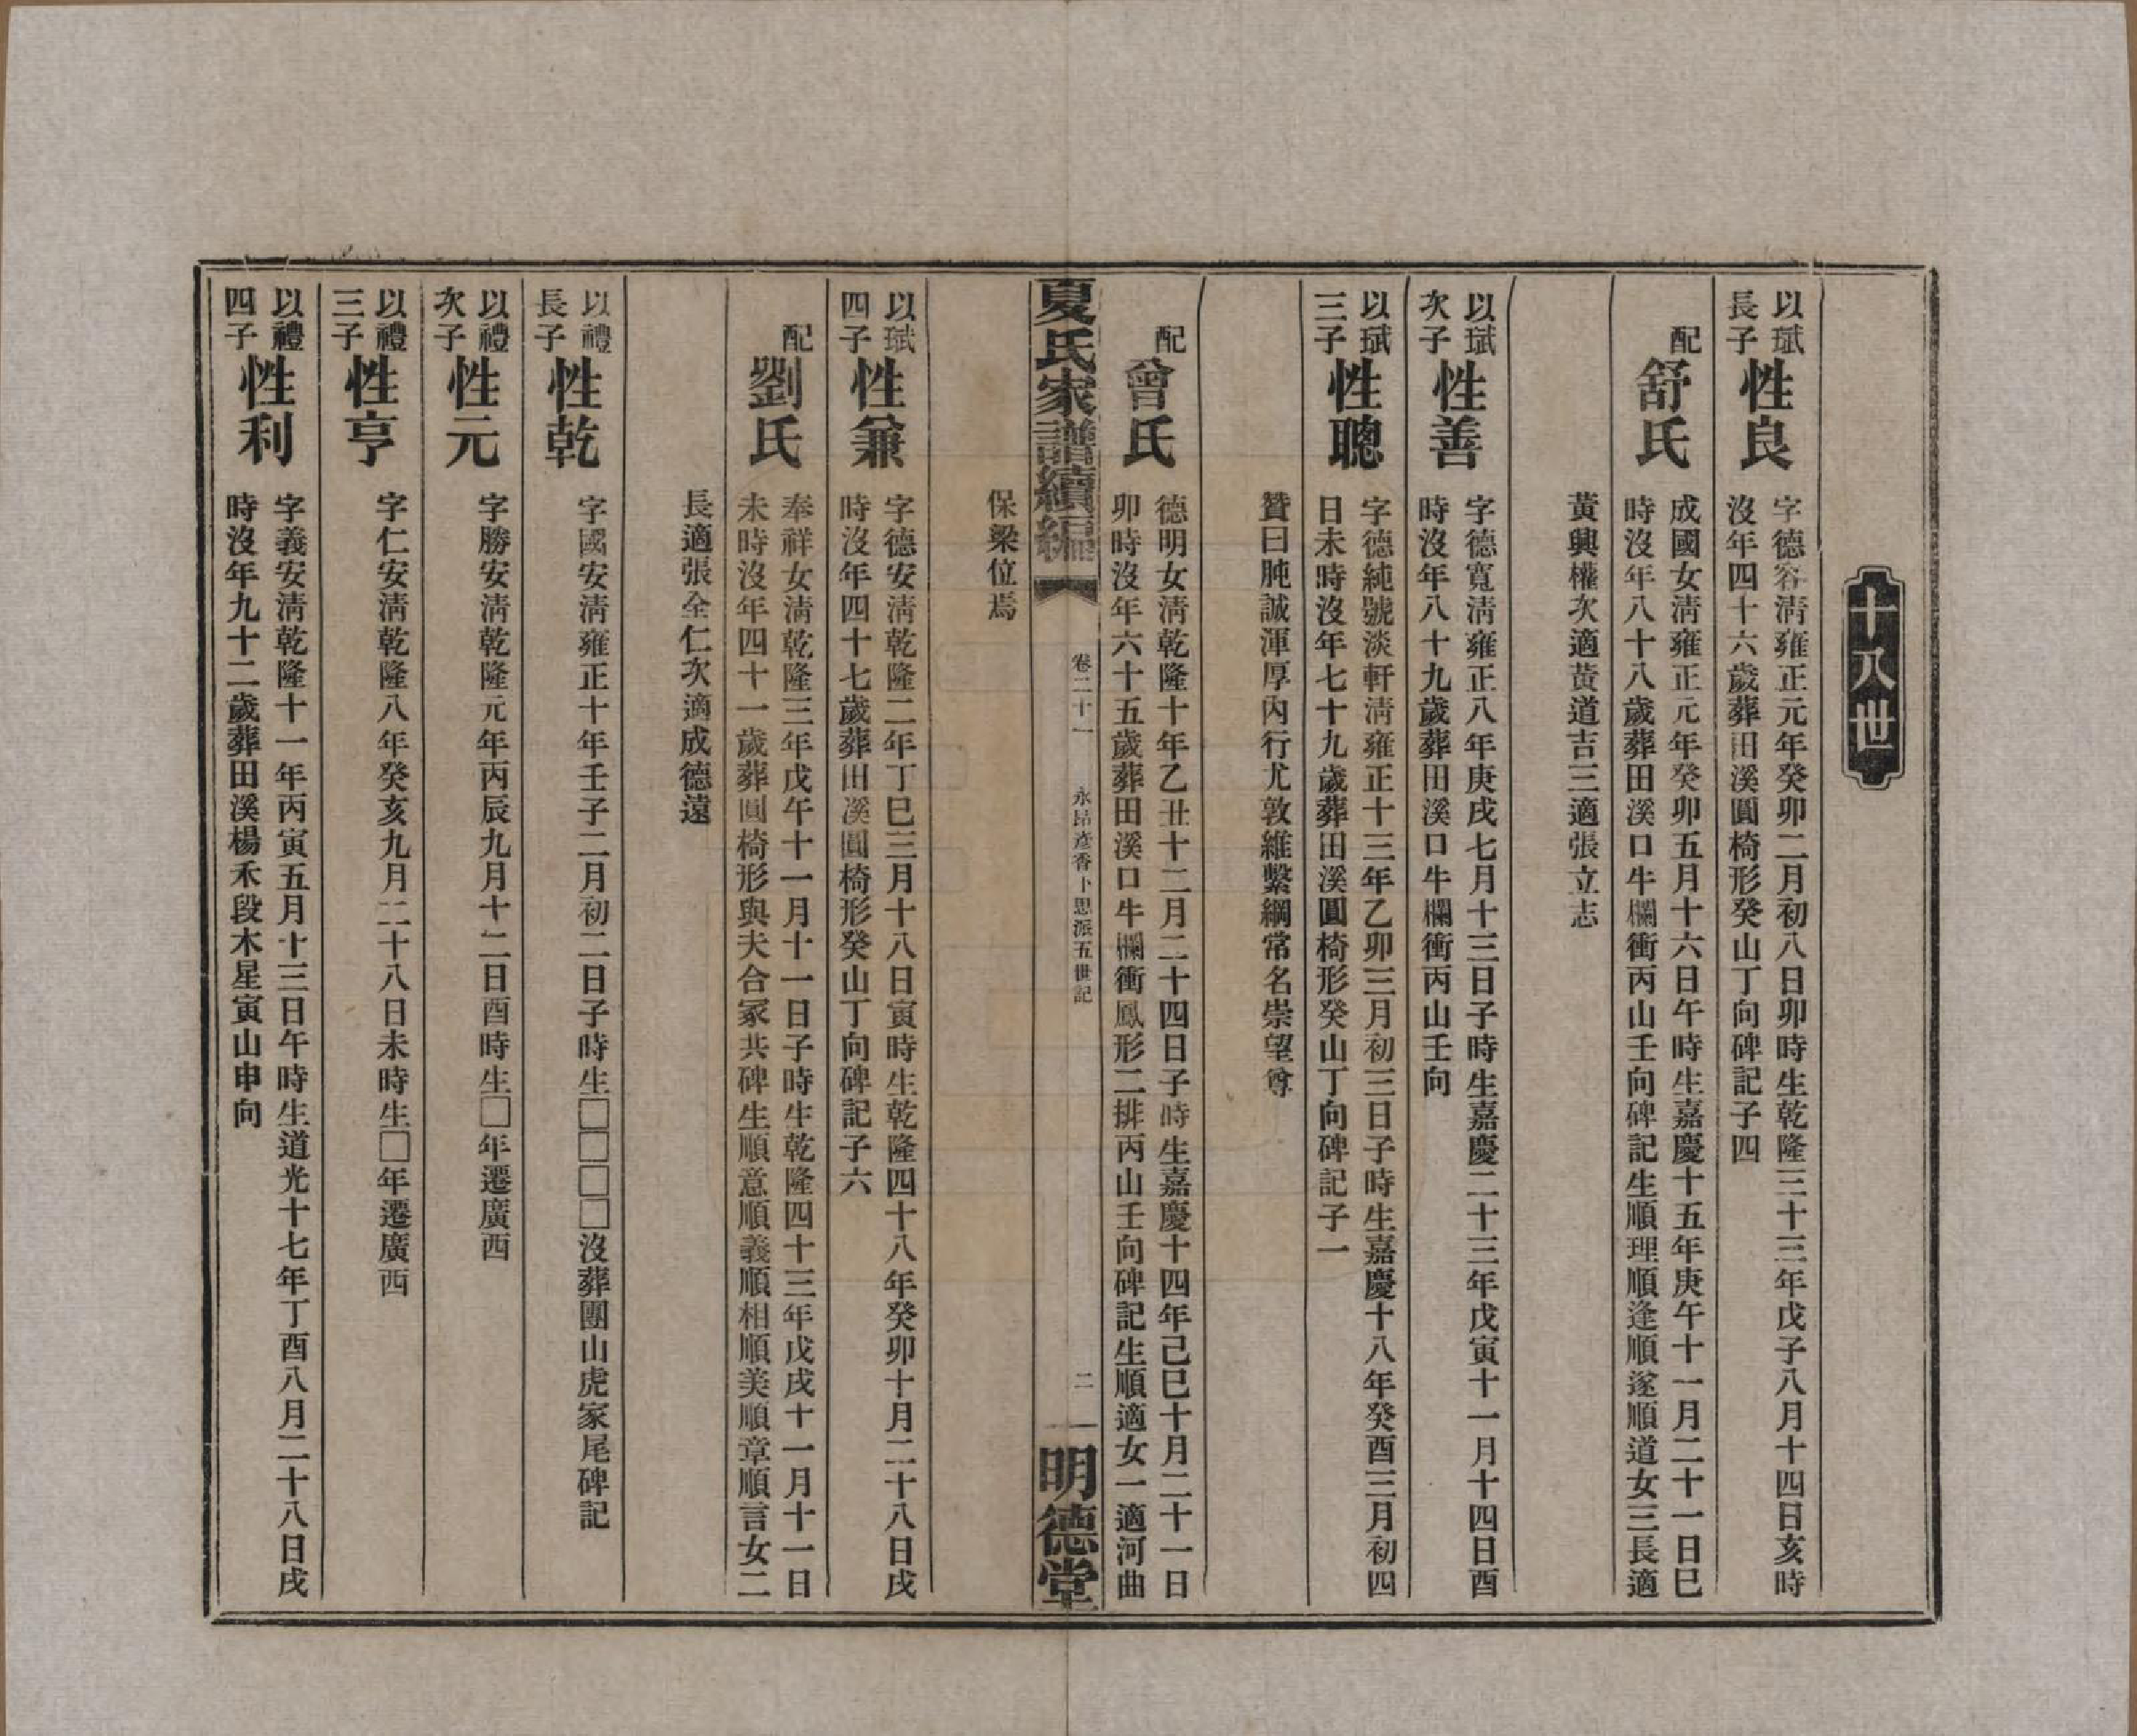 十八世
以珷長子
性良
字德容淸雍正元年癸卯二月初八日卯時生乾隆三十三年戊子八月十四日亥時
沒年四十六歲葬田溪圓椅形癸山丁向碑記子四
配
舒氏
成國女淸雍正元年癸卯五月十六日午時生嘉慶十五年庚午十一月二十一日巳
時沒年八十八歲葬田溪口牛欄衝丙山壬向碑記生順理順逢順遂順道女三長適
黃興權次適黃道吉三適張立志
以珷次子
性善
字德寬淸雍正八年庚戌七月十三日子時生嘉慶二十三年戊寅十一月十四日酉
時沒年八十九歲葬田溪口牛欄衝丙山壬向
以珷三子
性聰
字德純號淡軒淸雍正十三年乙卯三月初三日子時生嘉慶十八年癸酉三月初四
日未時沒年七十九歲葬田溪圓椅形癸山丁向碑記子一
贊曰肫誠渾厚內行尤敦維繫綱常名崇望尊
配
曾氏
德明女淸乾隆十年乙丑十二月二十四日子時生嘉慶十四年己巳十月二十一日
卯時沒年六十五歲葬田溪口牛欄衝鳳形二排丙山壬向碑記生順適女一適河曲
夏氏家譜續編
卷二十一
永昂彥香卜思派五世記
二
明德堂
保梁位焉
以珷四子
性兼
字德安淸乾隆二年丁巳三月十八日寅時生乾隆四十八年癸卯十月二十八日戌
時沒年四十七歲葬田溪圓椅形癸山丁向碑記子六
配
劉氏
奉祥女淸乾隆三年戊午十一月十一日子時生乾隆四十三年戊戌十一月十一日
未時沒年四十一歲葬圓椅形與夫合冢共碑生順意順義順相順美順章順言女二
長適張全仁次適成德遠
以禮長子
性乾
字國安淸雍正十年壬子二月初二日子時生□□□□沒葬團山虎家尾碑記
以禮次子
性元
字勝安淸乾隆元年丙辰九月十二日酉時生□年遷廣西
以禮三子
性亨
字仁安淸乾隆八年癸亥九月二十八日未時生□年遷廣西
以禮四子
性利
字義安淸乾隆十一年丙寅五月十三日午時生道光十七年丁酉八月二十八日戌
時沒年九十二歲葬田溪楊禾段木星寅山申向